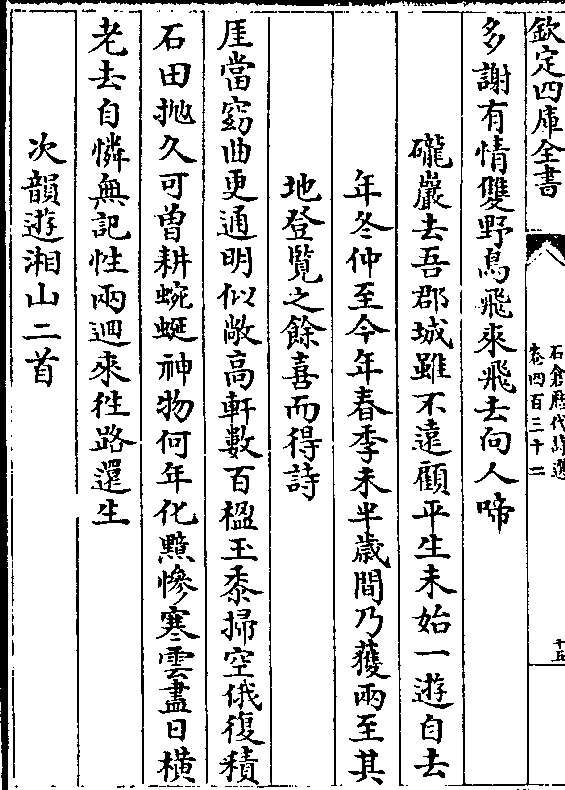 欽定四庫全書
石倉歷代詩選
卷四百三十二
十五
多謝有情雙野鳥飛來飛去向人啼
礲巖去吾郡城雖不遠顧平生未始一遊自去
年冬仲至今年春季未半歲間乃獲兩至其
地登覽之餘喜而得詩
厓當窈曲更通明似敞高軒數百楹玉黍掃空俄復積
石田抛久可曾耕蜿蜒神物何年化黯慘寒雲盡日橫
老去自憐無記性兩迴來徃路還生
次韻遊湘山二首